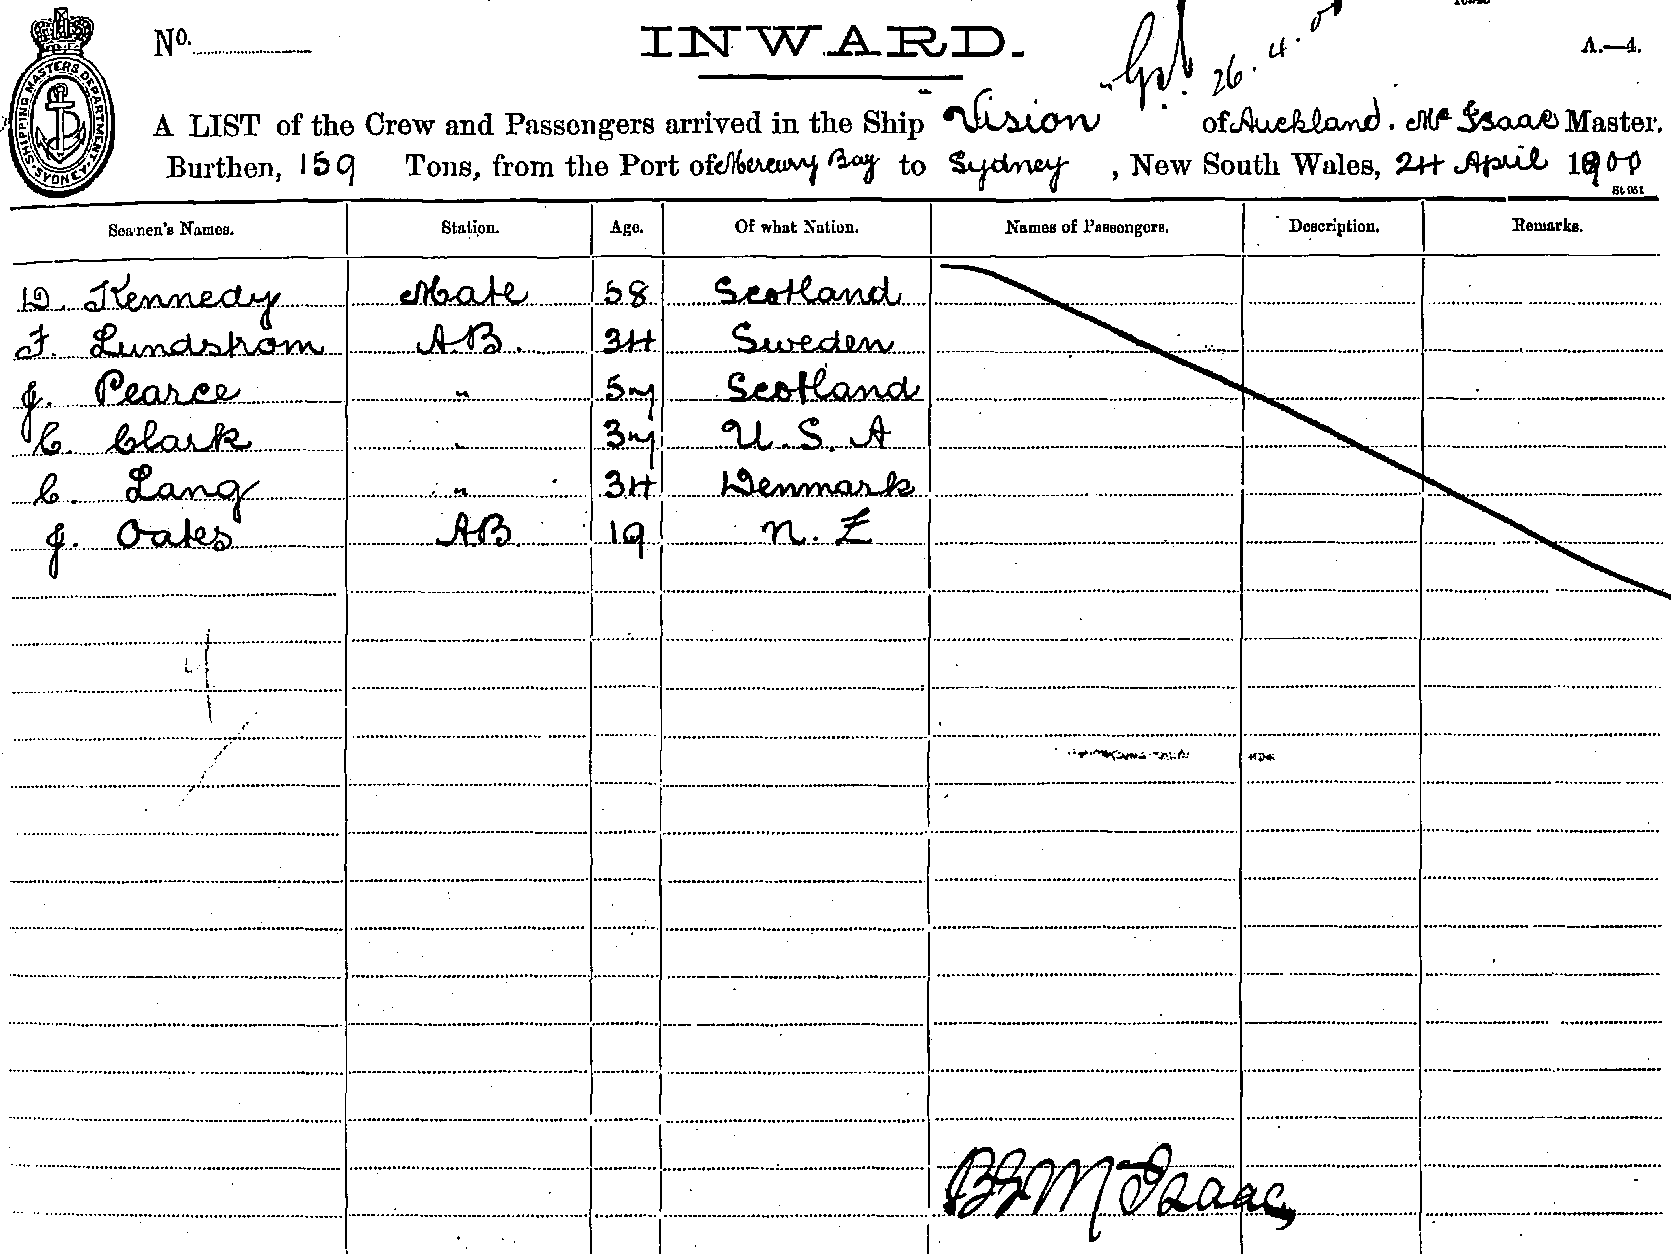 No.
INWARD.
26.4.0
A.—4.
SHIPPING MASTERS DEPARTMENT SYDNEY
A LIST of the Crew and Passengers arrived in the Ship Vision of Auckland. Mc Isaac Master.
Burthen, 159 Tons, from the Port of Mercury Bay to Sydney, New South Wales, 24 April 1900
Seamen's Names. Station. Age. Of what Nation. Names of Passengers. Description. Remarks.
D. Kennedy Mate 58 Scotland
F. Lundstrom A.B. 34 Sweden
J. Pearce " 57 Scotland
C. Clark " 37 U.S.A
C. Lang " 34 Denmark
J. Oates AB 19 N.Z
McIsaac